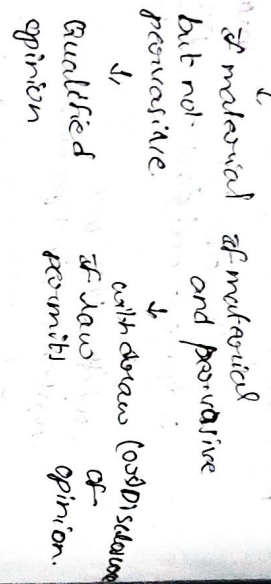 If material
but not
pervasive
↓
Qualified
opinion
If material
and pervasive
↓
withdraw (or) Disclaim
If law of
permits opinion.